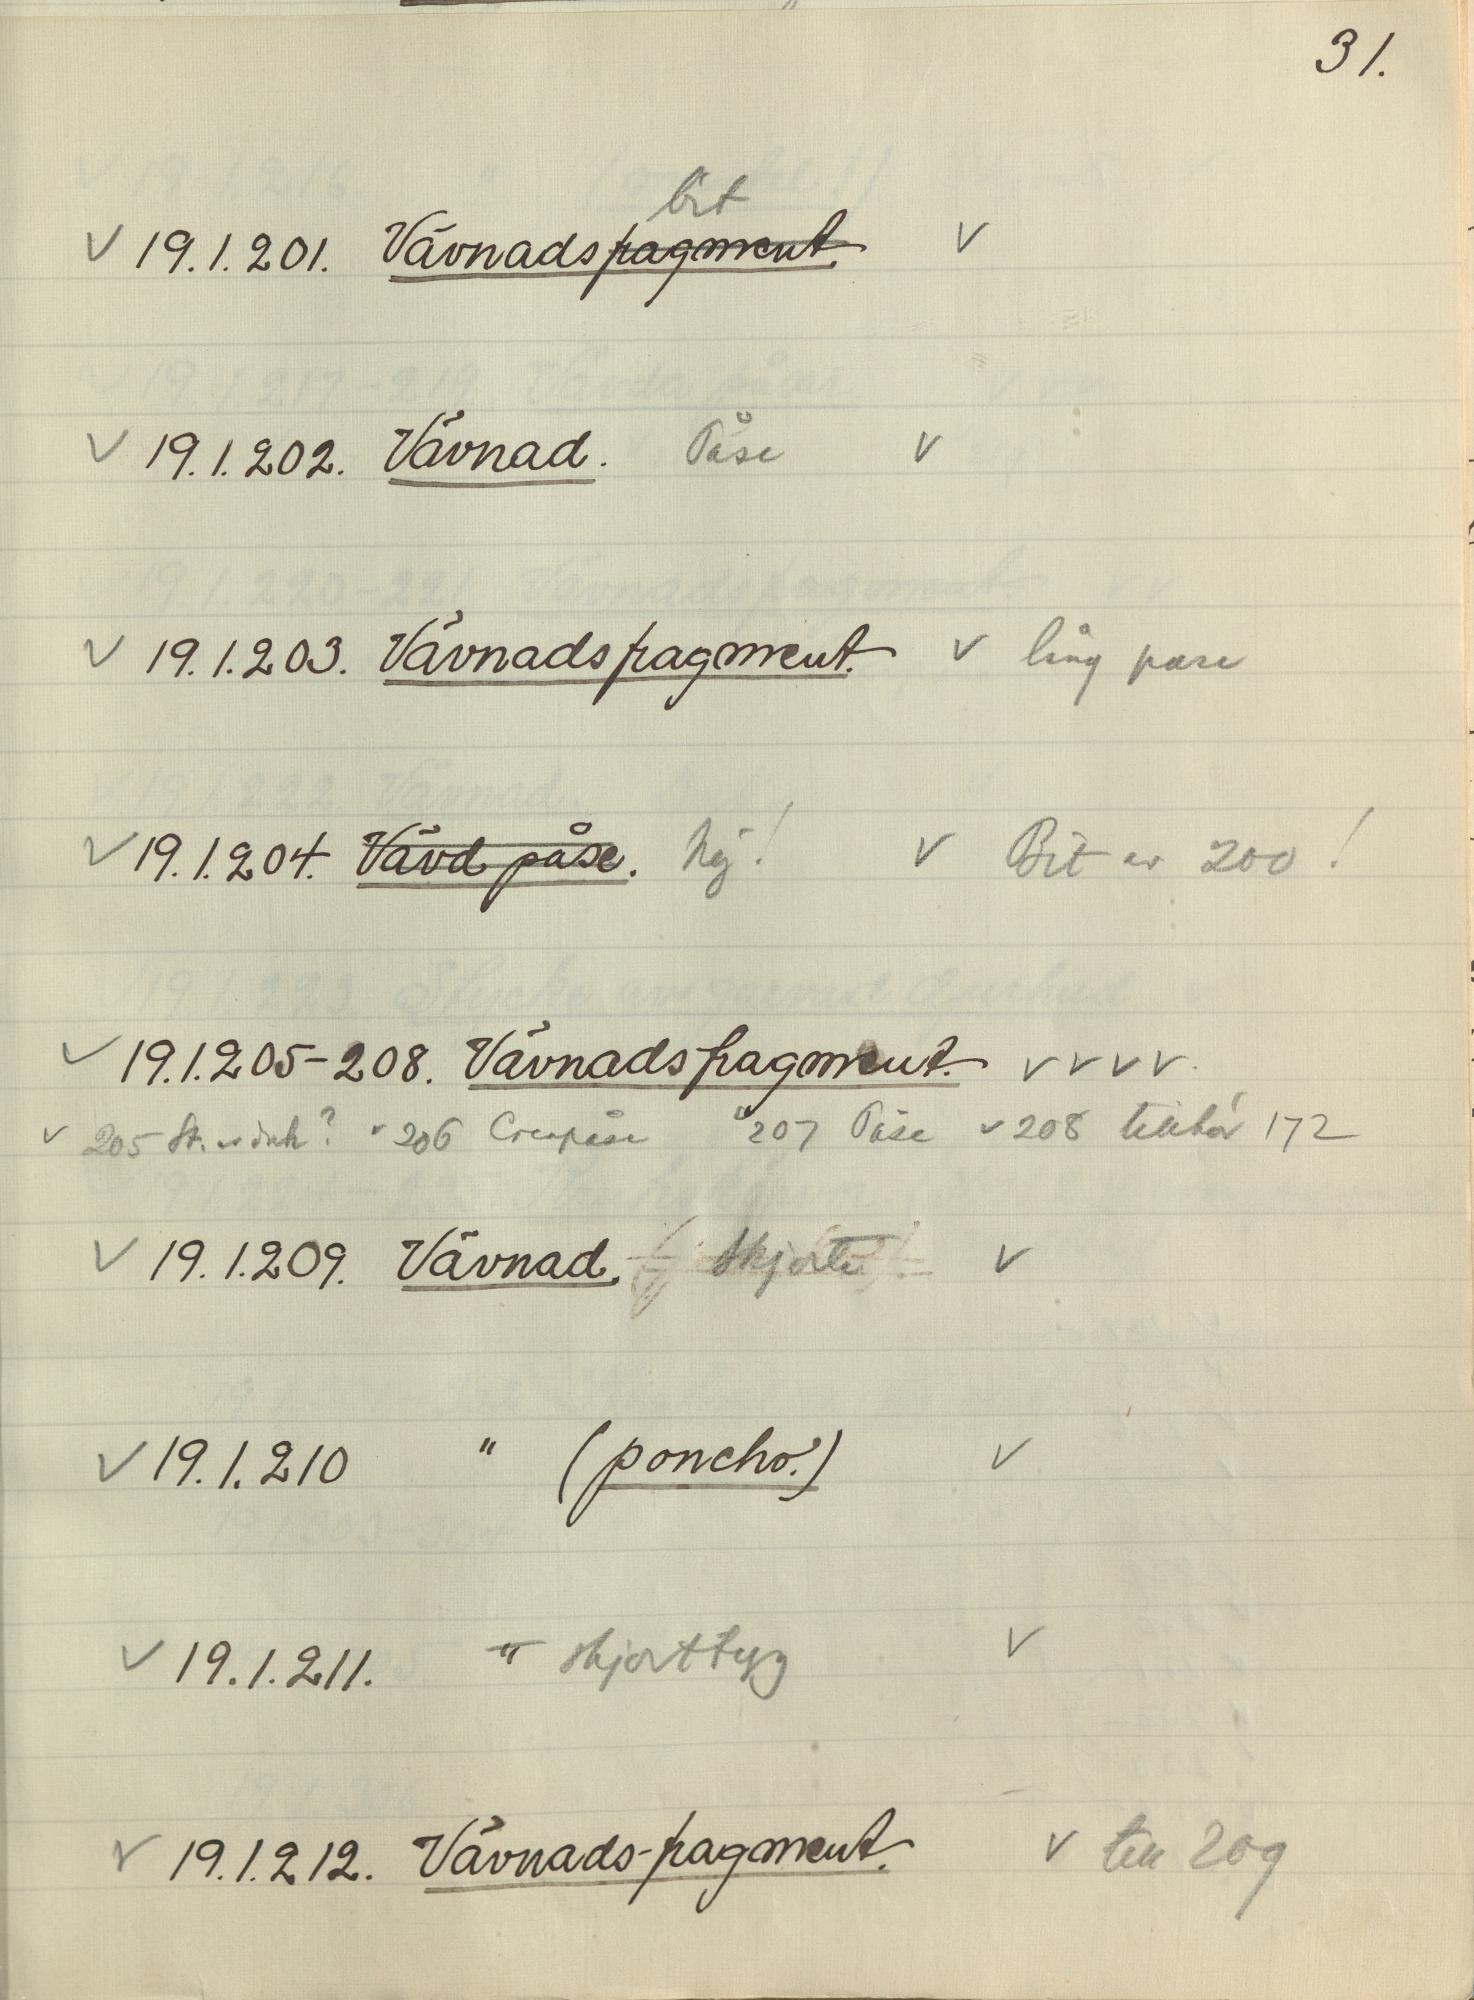 31.
bit
✓ 19.1.201. Vävnadsfragment. ✓
✓ 19.1.202. Vävnad. Påse ✓
✓ 19.1.203. Vävnadsfragment. ✓ lång påse
✓ 19.1.204. Vävd påse. Nej! ✓ Bit av 200!
✓ 19.1.205-208. Vävnadsfragment. ✓ ✓ ✓ ✓.
✓ 205 St. av duk? ✓ 206 ✓ 207 Påse ✓ 208 tillhör 172
✓ 19.1.209. Vävnad. skjorta ✓
✓ 19.1.210 " (poncho.) ✓
✓ 19.1.211. " skjorttyg ✓
✓ 19.1.212. Vävnads-fragment. ✓ till 209